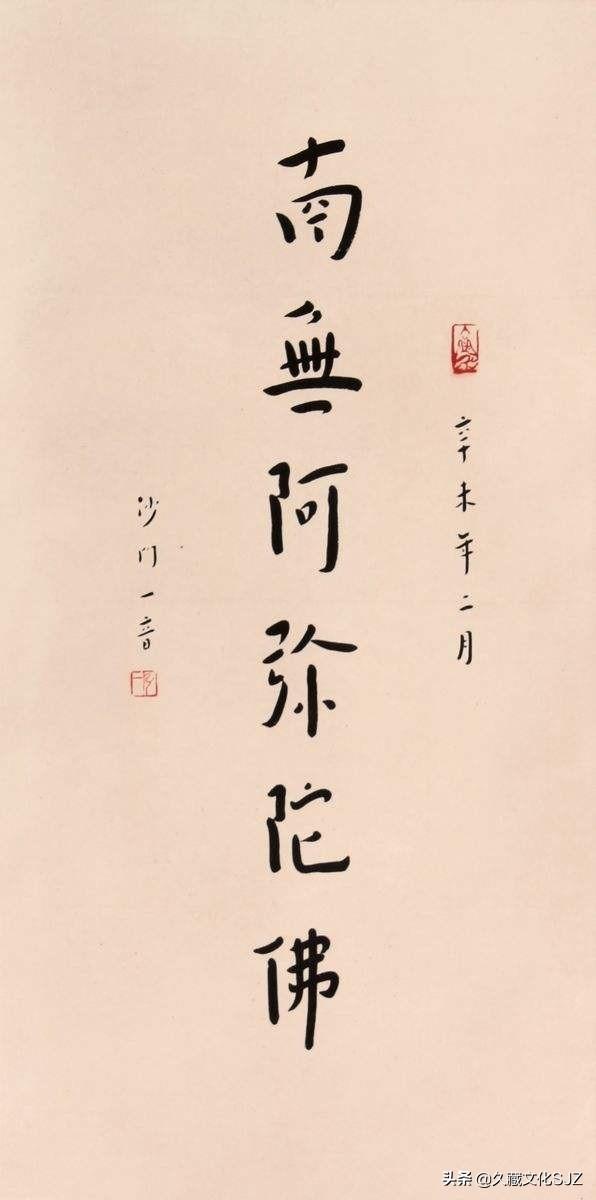 辛未年二月
南無阿弥陀佛
沙门一音
头条 @久藏文化SJZ